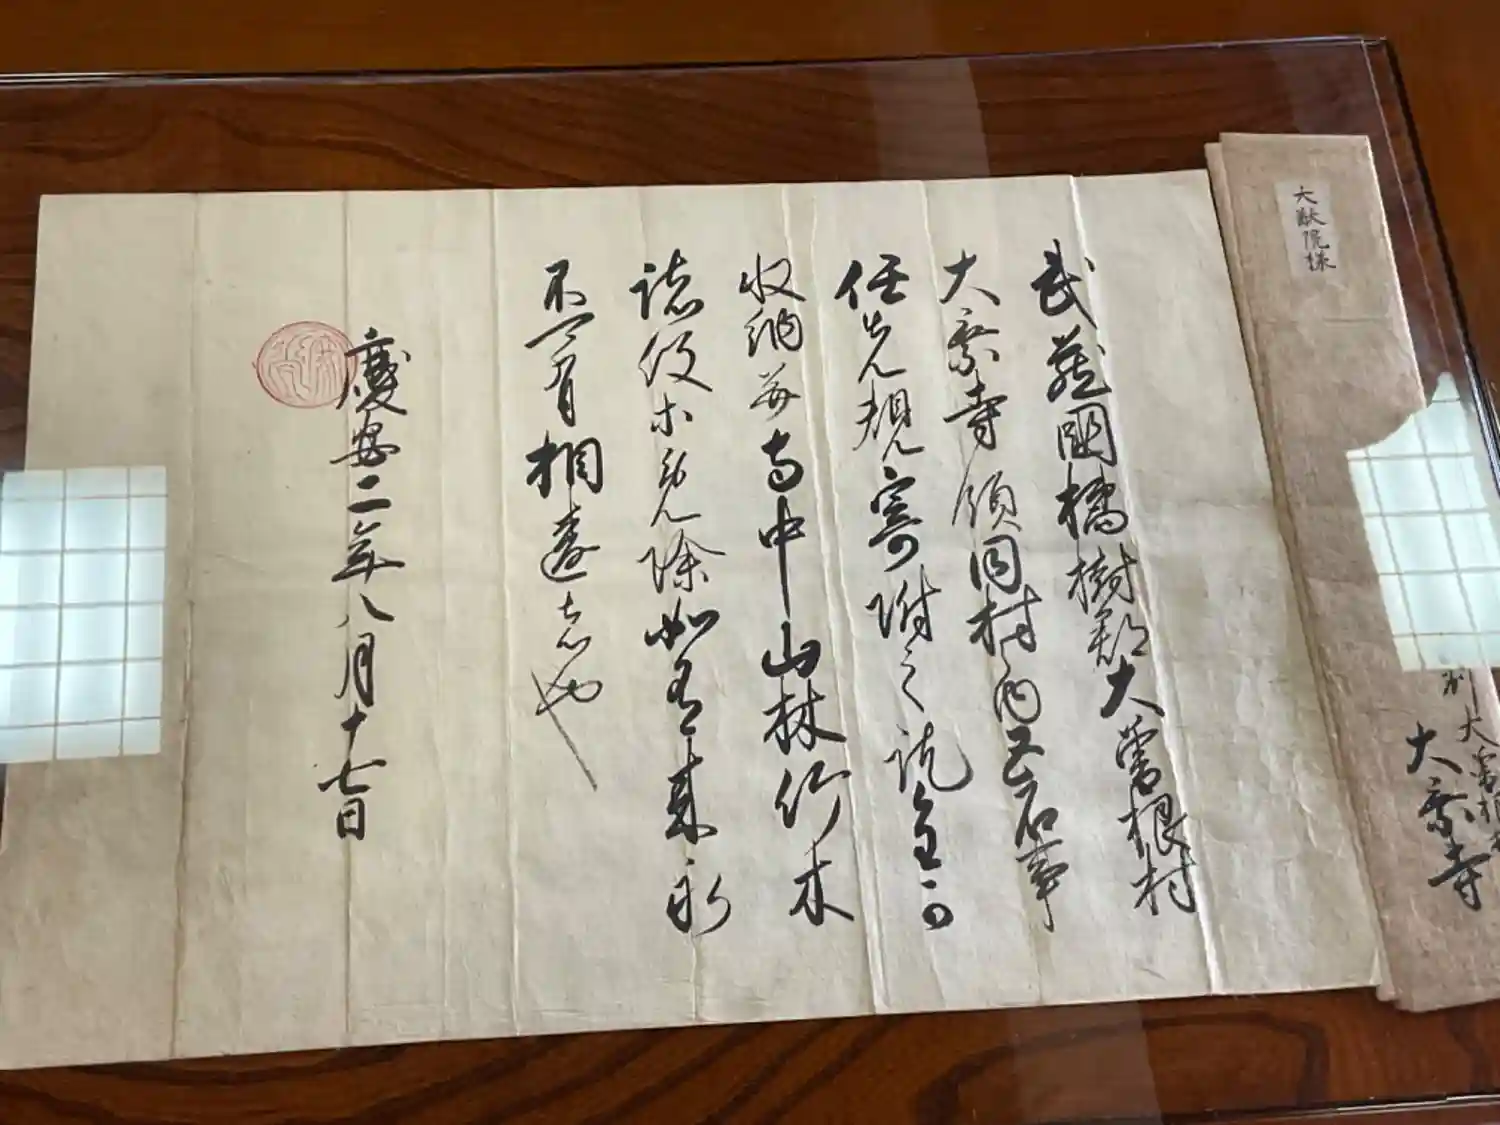 武蔵國橘樹郡大曽根村
大乗寺領同村内五石事
任先規寄附之訖全可
収納并寺中山林竹木
諸役等免除如有来永
不可有相違者也
慶安二年八月十七日
大猷院様
大曽根村
大乗寺